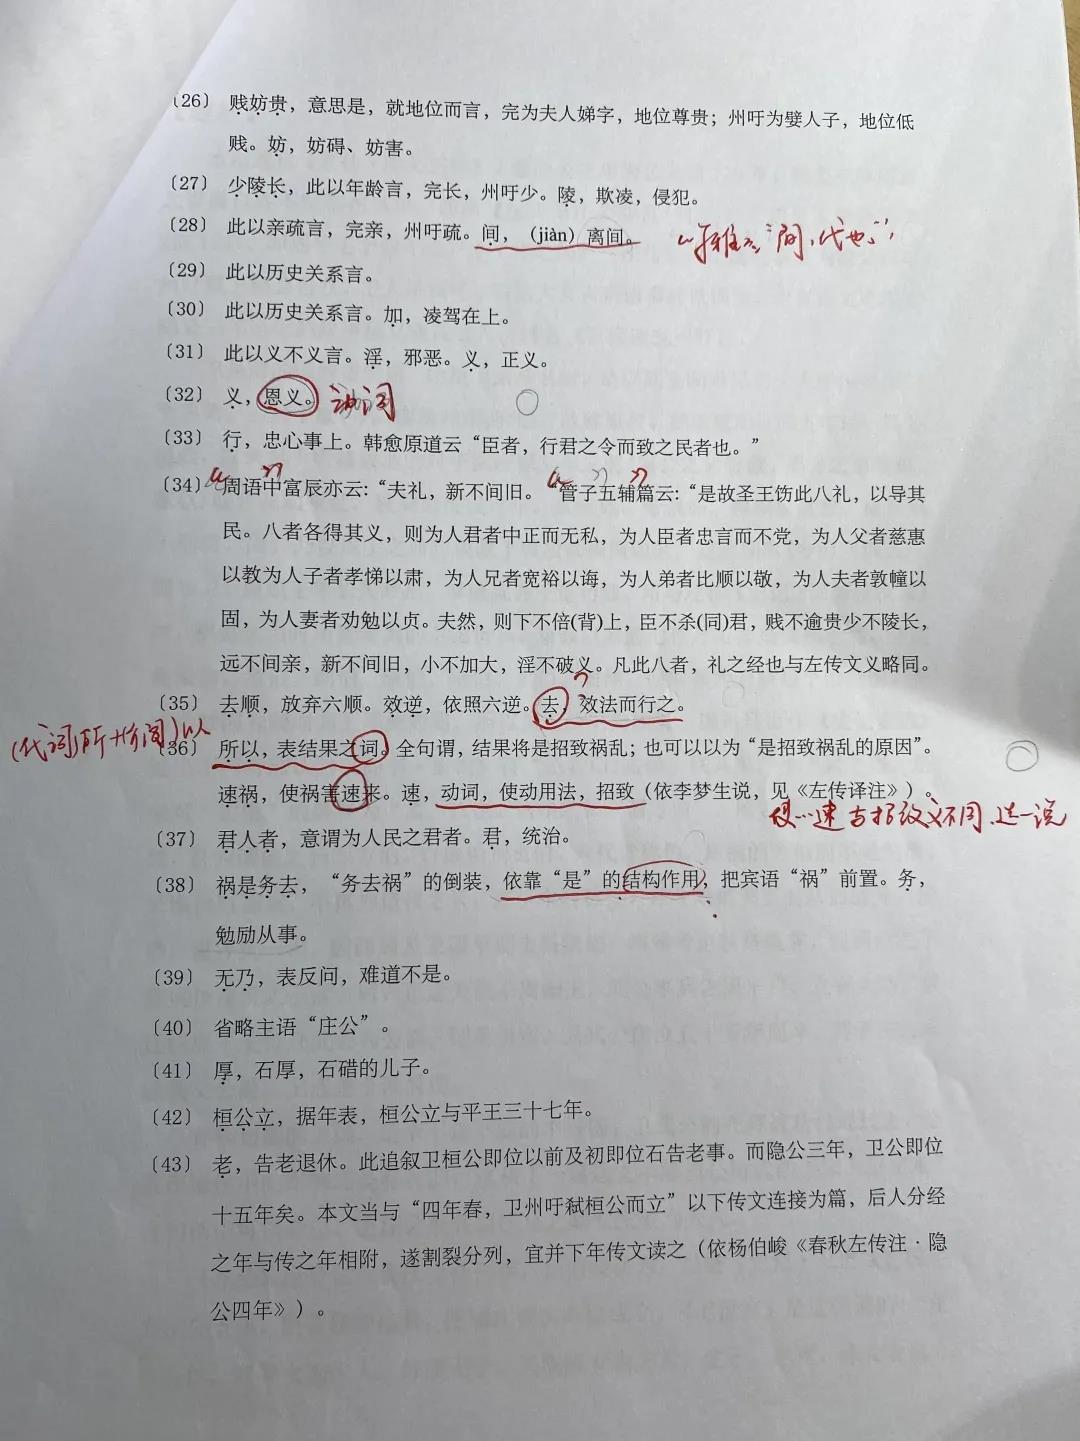 〔26〕 贱妨贵，意思是，就地位而言，完为夫人娣字，地位尊贵；州吁为嬖人子，地位低
贱。妨，妨碍、妨害。
〔27〕 少陵长，此以年龄言，完长，州吁少。陵，欺凌，侵犯。
〔28〕 此以亲疏言，完亲，州吁疏。间，（jiàn）离间。 “尔雅”：“间、代也”
〔29〕 此以历史关系言。
〔30〕 此以历史关系言。加，凌驾在上。
〔31〕 此以义不义言。淫，邪恶。义，正义。
〔32〕 义，恩义。 动词
〔33〕 行，忠心事上。韩愈原道云“臣者，行君之令而致之民者也。”
〔34〕 周语中富辰亦云：“夫礼，新不间旧。“管子五辅篇云：“是故圣王饬此八礼，以导其
民。八者各得其义，则为人君者中正而无私，为人臣者忠言而不党，为人父者慈惠
以教为人子者孝悌以肃，为人兄者宽裕以诲，为人弟者比顺以敬，为人夫者敦幢以
固，为人妻者劝勉以贞。夫然，则下不倍(背)上，臣不杀(同)君，贱不逾贵少不陵长，
远不间亲，新不间旧，小不加大，淫不破义。凡此八者，礼之经也与左传文义略同。
〔35〕 去顺，放弃六顺。效逆，依照六逆。去，效法而行之。 ？
(代词所+介词)以
〔36〕 所以，表结果之词。全句谓，结果将是招致祸乱；也可以以为“是招致祸乱的原因”。
速祸，使祸害速来。速，动词，使动用法，招致（依李梦生说，见《左传译注》）。
使…速与招致义不同，选一说
〔37〕 君人者，意谓为人民之君者。君，统治。
〔38〕 祸是务去，“务去祸”的倒装，依靠“是”的结构作用，把宾语“祸”前置。务，
勉励从事。
〔39〕 无乃，表反问，难道不是。
〔40〕 省略主语“庄公”。
〔41〕 厚，石厚，石碏的儿子。
〔42〕 桓公立，据年表，桓公立与平王三十七年。
〔43〕 老，告老退休。此追叙卫桓公即位以前及初即位石告老事。而隐公三年，卫公即位
十五年矣。本文当与“四年春，卫州吁弑桓公而立”以下传文连接为篇，后人分经
之年与传之年相附，遂割裂分列，宜并下年传文读之（依杨伯峻《春秋左传注·隐
公四年》）。